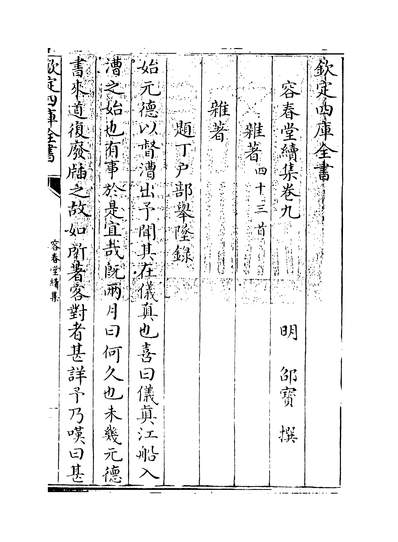 欽定四庫全書
容春堂續集卷九
明　邵寶　撰
雜著四十三首
雜著
題丁戶部舉墜錄
始元德以督漕出予聞其在儀真也喜曰儀真江船入
漕之始也有事於是宜哉既兩月曰何久也未幾元德
書來道復廢牐之故如所著客對者甚詳予乃嘆曰甚
欽定四庫全書
容春堂續集
一